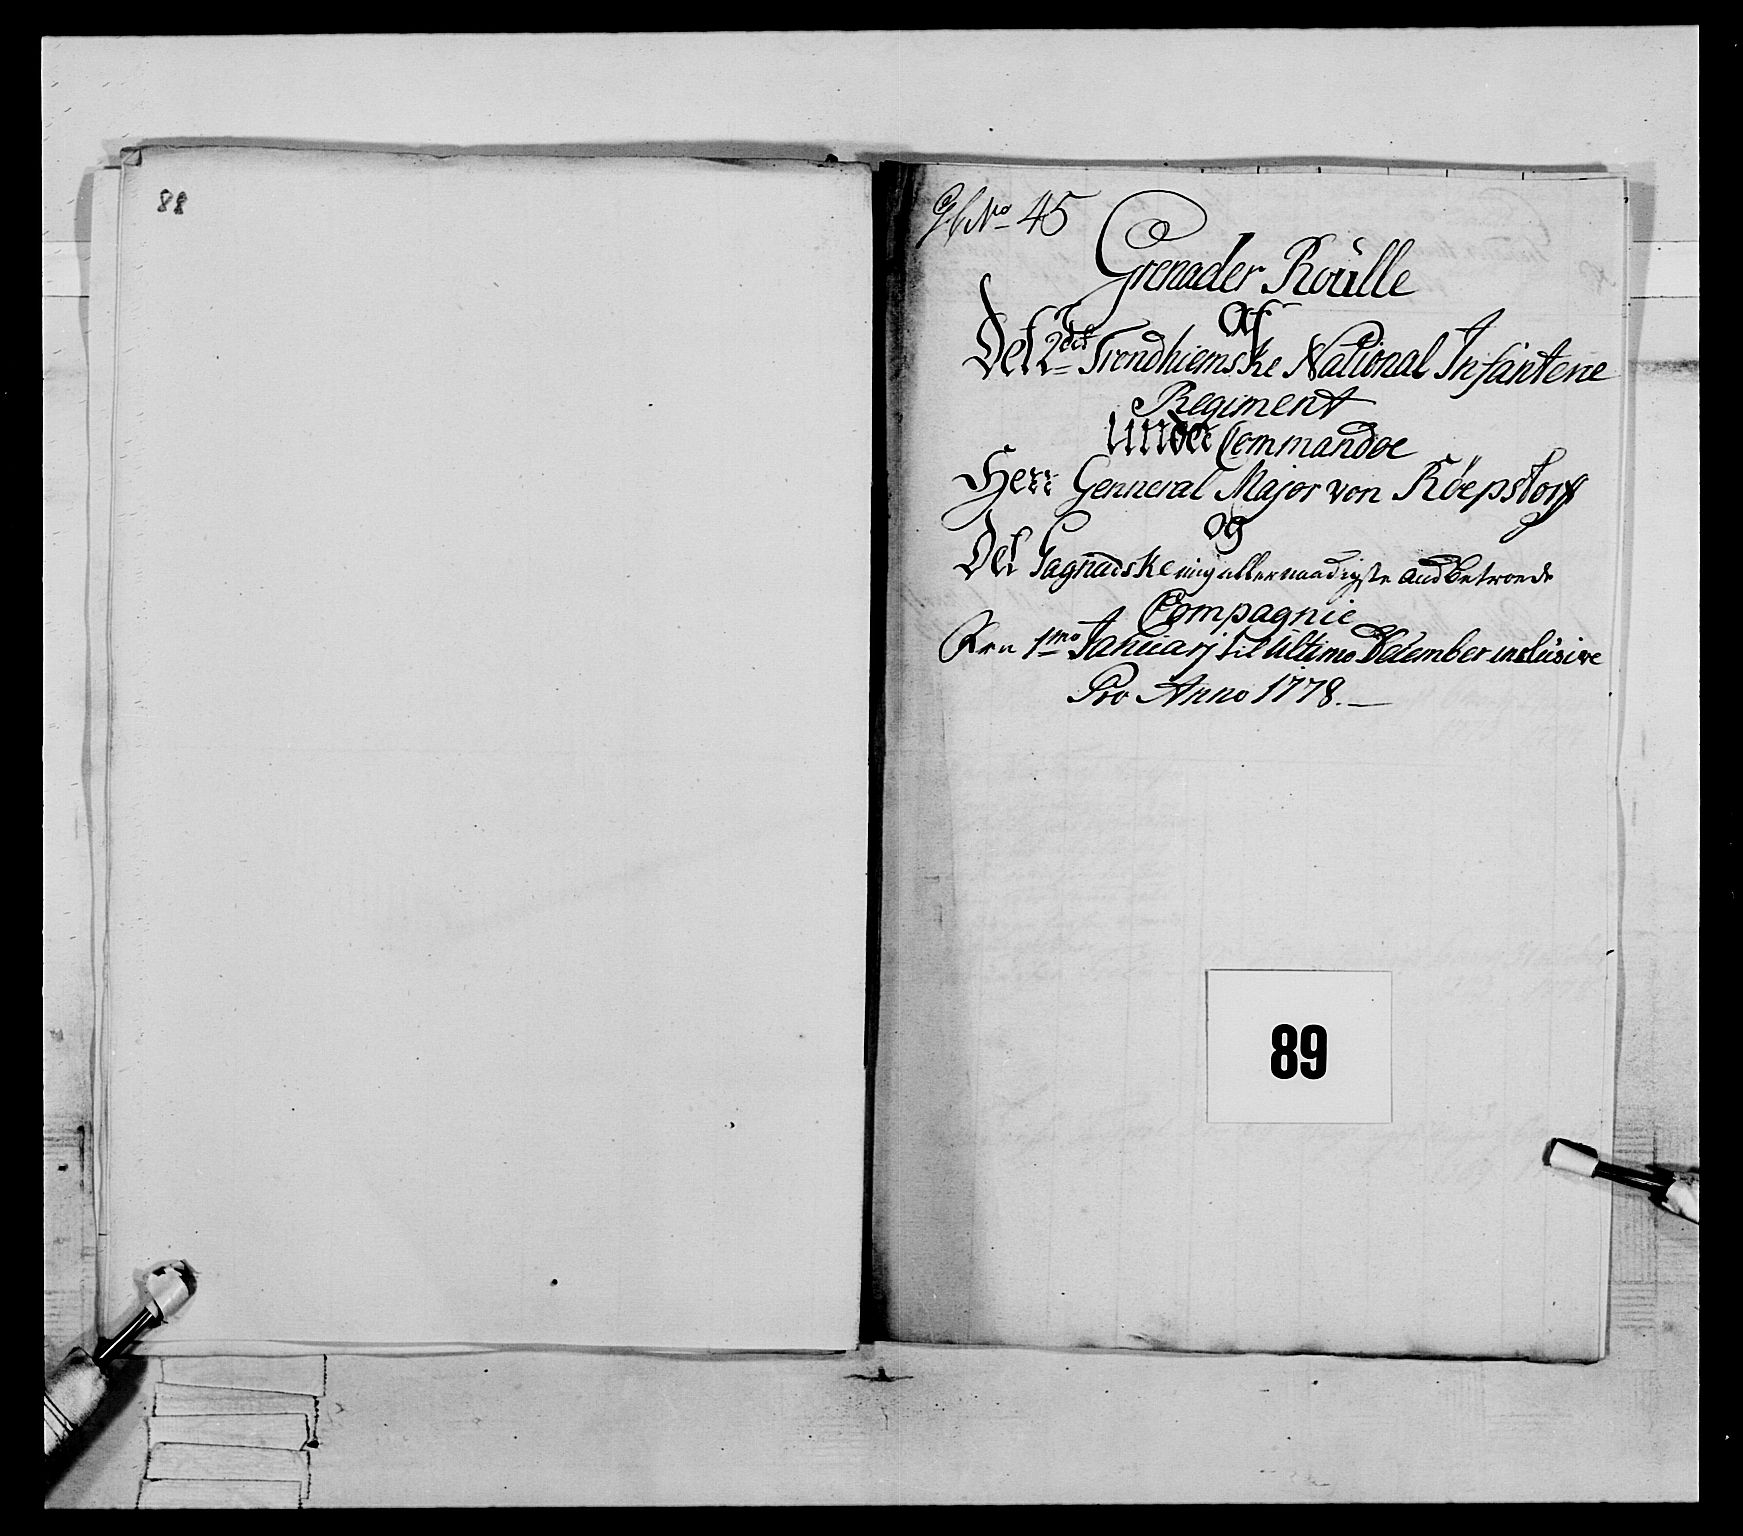 88
No 45
Grenader Roülle
Af
Det 2det Trondhiemske National Infanterie
Regiment
Under Commandoe
Herr Genneral Major von Röepstorff
og
Det Sagnadske mig allernaadigste and betroede
Compagnie
Fra 1mo Januarj til Ultimo December inclüsive
Pro Anno 1778.
89